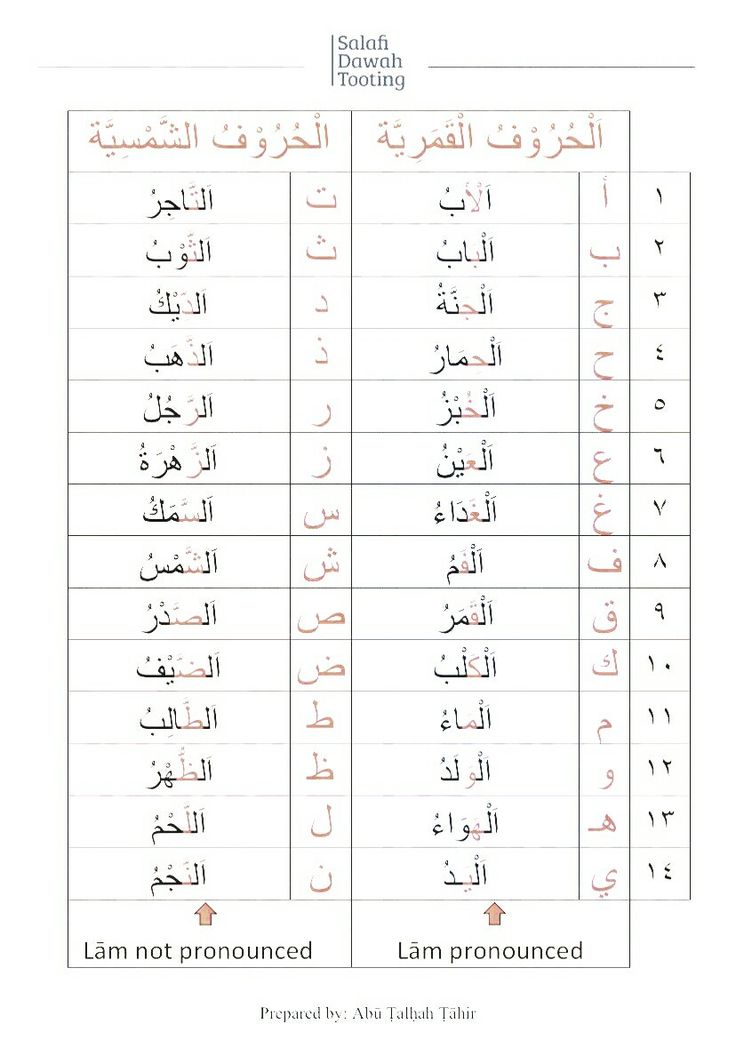 Salafi
Dawah
Tooting
اَلْحُرُوْفُ الْقَمَرِيَّة الْحُرُوْفُ الشَّمْسِيَّة
١ أ اَلْأَبُ ت اَلتَّاجِرُ
٢ ب اَلْبابُ ث اَلثَّوْبُ
٣ ج اَلْجَنَّةُ د اَلدِّيْكُ
٤ ح اَلْحِمَارُ ذ اَلذَّهَبُ
٥ خ اَلْخُبْزُ ر اَلرَّجُلُ
٦ ع اَلْعَيْنُ ز اَلزَّهْرَةُ
٧ غ اَلْغَدَاءُ س اَلسَّمَكُ
٨ ف اَلْفَمُ ش اَلشَّمْسُ
٩ ق اَلْقَمَرُ ص اَلصَّدْرُ
١٠ ك اَلْكَلْبُ ض اَلضَّيْفُ
١١ م اَلْماءُ ط اَلطَّالِبُ
١٢ و اَلْولَدُ ظ اَلظُّهْرُ
١٣ هـ اَلْهَوَاءُ ل اَللَّحْمُ
١٤ ي اَلْيـدُ ن اَلنَّجْمُ
Lām not pronounced Lām pronounced
Prepared by: Abū Ṭalḥah Ṭāhir